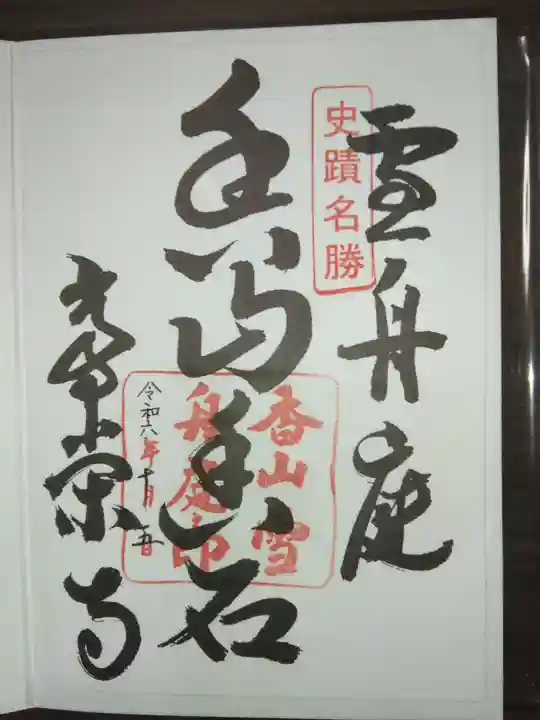 史蹟名勝
雪舟庭
香山雪
舟庭印
令和六年十月五日
常栄寺